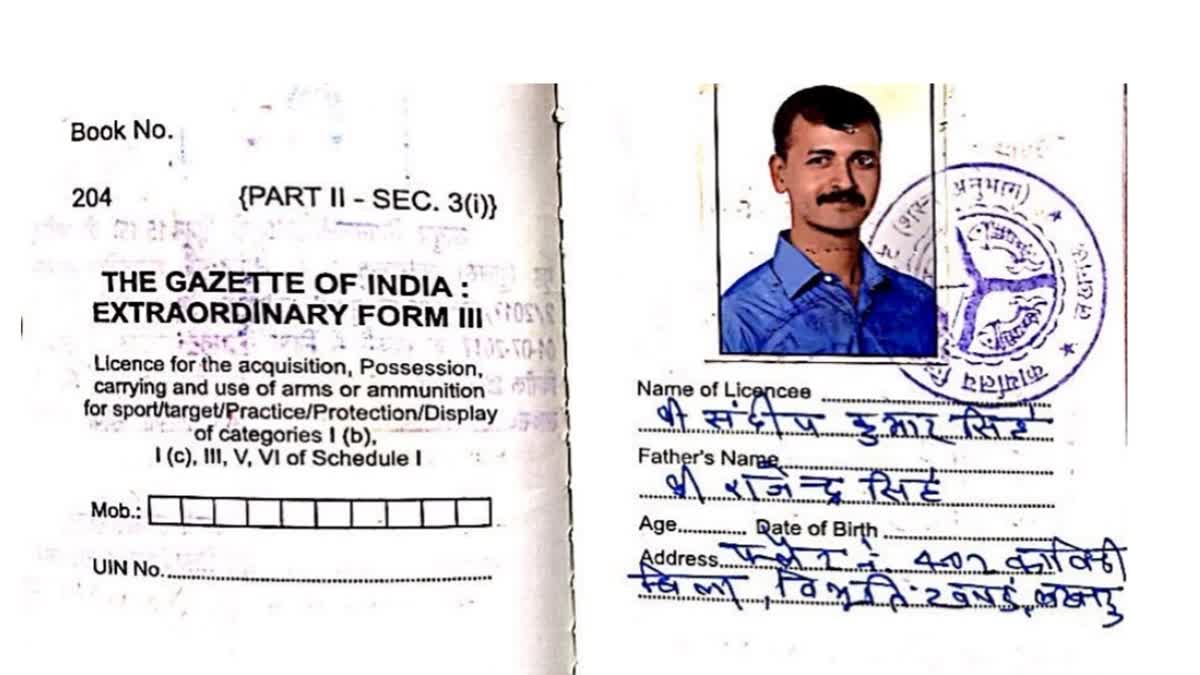 Book No.
204 {PART II - SEC. 3(i)}
THE GAZETTE OF INDIA :
EXTRAORDINARY FORM III
Licence for the acquisition, Possession,
carrying and use of arms or ammunition
for sport/target/Practice/Protection/Display
of categories I (b),
I (c), III, V, VI of Schedule I
Mob.:
UIN No.
अनुभाग)
कार्यालय
Name of Licencee
श्री संदीप कुमार सिंह
Father's Name
श्री राजेन्द्र सिंह
Age. Date of Birth
Address. फ्लैट नं. 402
विला, विभूति खण्ड, लखनऊ